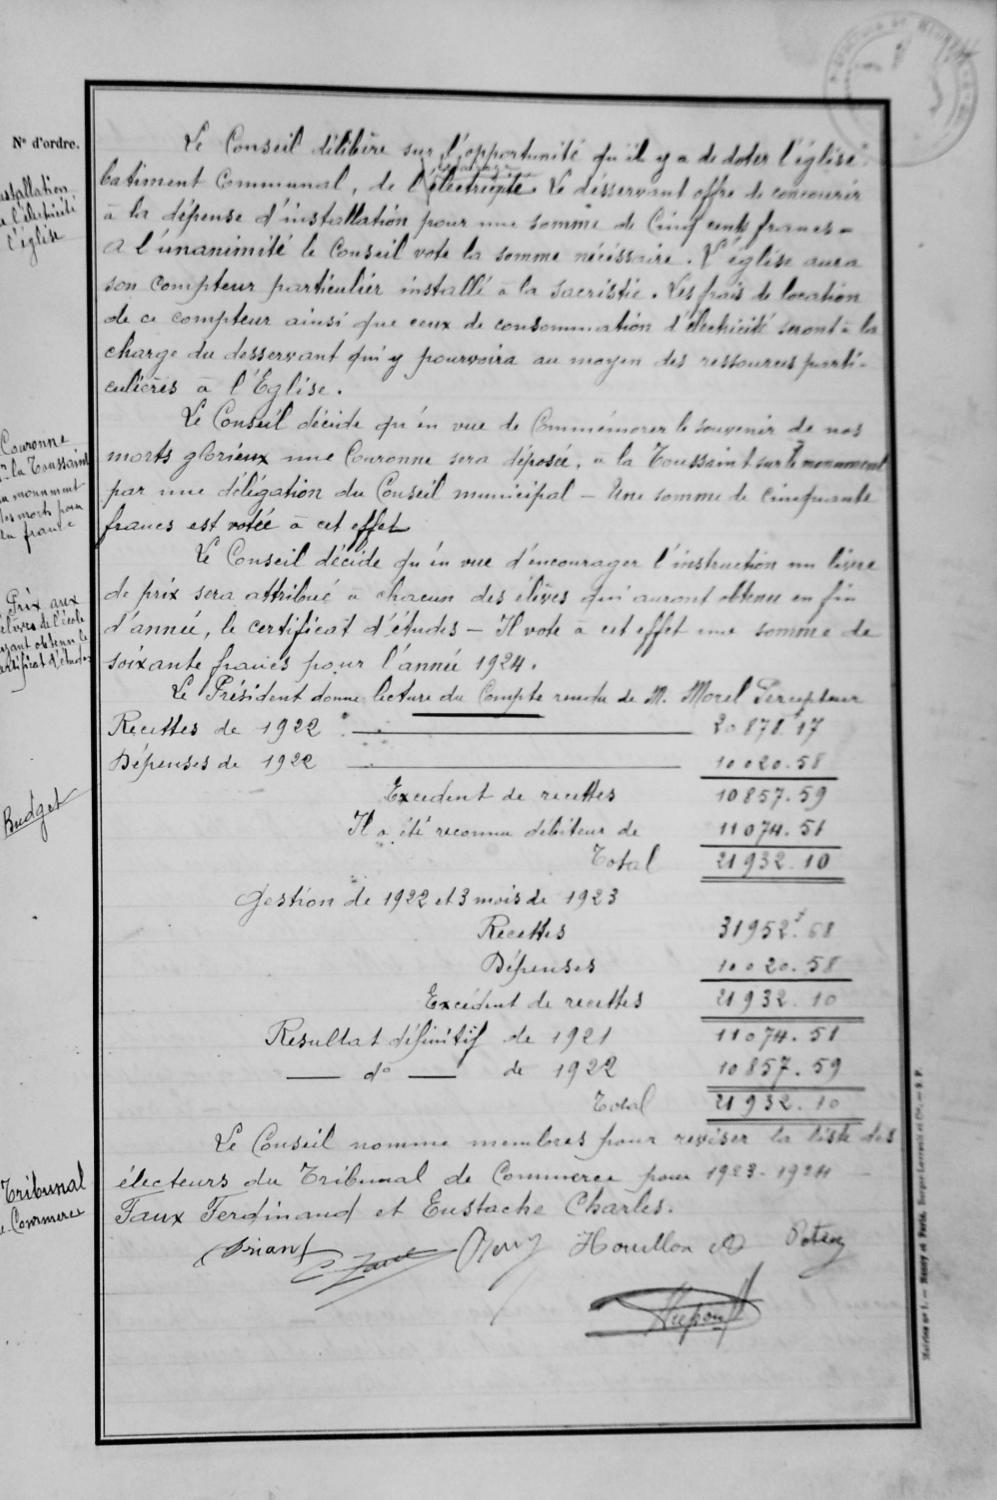 N° d'ordre.
Le Conseil délibère sur l'opportunité qu'il y a de doter l'église
installation
de l'électricité
l'église
batiment Communal, de l'électricité. Le désservant offre de concourir
à la dépense d'installation pour une somme de Cinq cents francs -
A l'únanimité le Conseil vote la somme nécéssaire. L'église aura
son compteur particulier installé à la sacristie. Les frais de location
de ce compteur ainsi que ceux de consommation d'électricité seront à la
charge du desservant qui y pourvoira au moyen des ressources parti-
culières à l'Eglise.
Couronne
à la Toussaint
au monument
des morts pour
la france
Le Conseil décide qu'én vue de Commémorer le souvenir de nos
morts glorieux une Couronne sera déposée, à la Toussaint sur le monument
par une délégation du Conseil municipal - Une somme de cinquante
francs est votée à cet effet
Prix aux
élèves de l'école
ayant obtenu le
certificat d'études
Le Conseil décide qu'én vue d'encourager l'instruction un livre
de prix sera attribué à chacun des élèves qui auront obtenu en fin
d'année, le certificat d'études - Il vote à cet effet une somme de
soixante francs pour l'année 1924.
Budget
Le Président donne lecture du Compte rendu de M. Morel Percepteur
Recettes de 1922 20878.17
Dépenses de 1922 10020.58
Excedent de recettes 10857.59
Il a été reconnu débiteur de 11074.51
Total 21932.10
Gestion de 1922 et 3 mois de 1923
Recettes 31952.68
Dépenses 10020.58
Excédent de recettes 21932.10
Resultat définitif de 1921 11074.51
— d° — de 1922 10857.59
Total 21932.10
Tribunal
de Commerce
Le Conseil nomme membres pour reviser la liste des
électeurs du Tribunal de Commerce pour 1923-1924 -
Faux Ferdinand et Eustache Charles.
Briant Houllon
Dupont